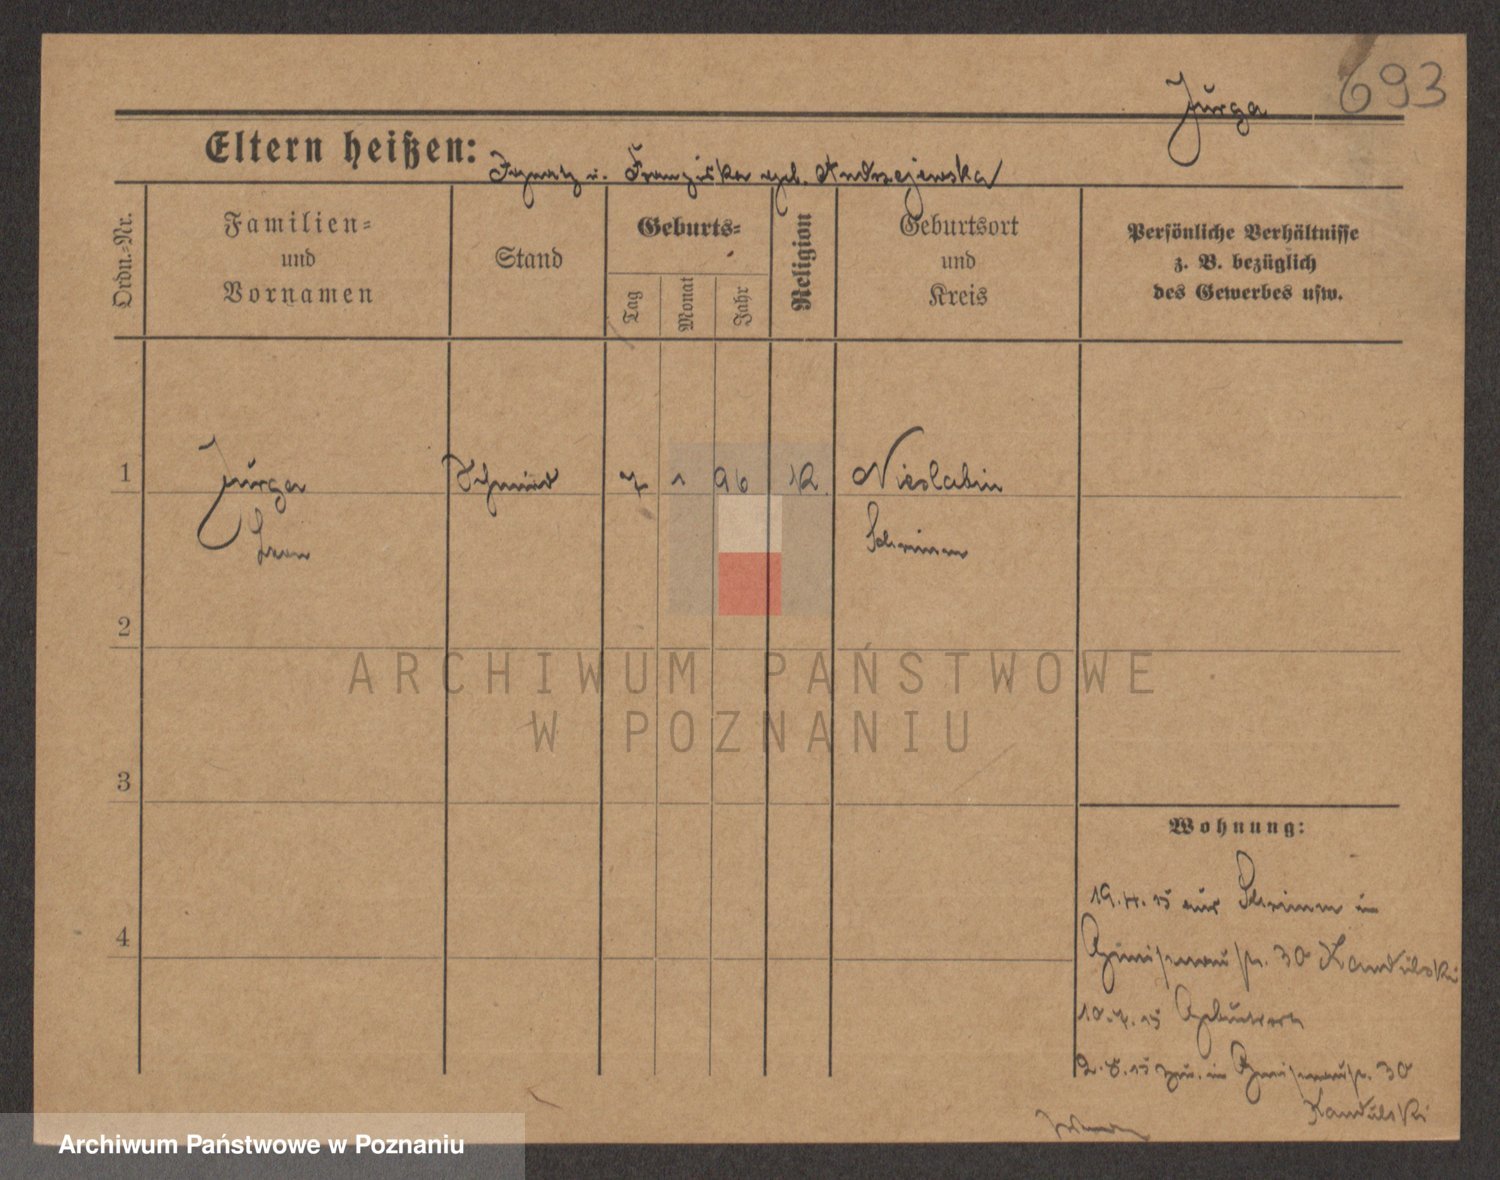 693
Jurga
Eltern heißen: Ignatz u. Franziska geb. Andrzejewska
Ordn.-Nr.
Familien-
und
Vornamen
Stand
Geburts-
Tag
Monat
Jahr
Religion
Geburtsort
und
Kreis
Persönliche Verhältnisse
z. B. bezüglich
des Gewerbes usw.
1 Jurga Schmied 7 1 96 K. Nieslabin
Leon Schrimm
2
ARCHIWUM PAŃSTWOWE
W POZNANIU
3
Wohnung:
19.4.15 aus Schrimm in
4
30 Kandulski
10.7.15 Geburtsort
2.8.15 in 30
Kandulski
Archiwum Państwowe w Poznaniu